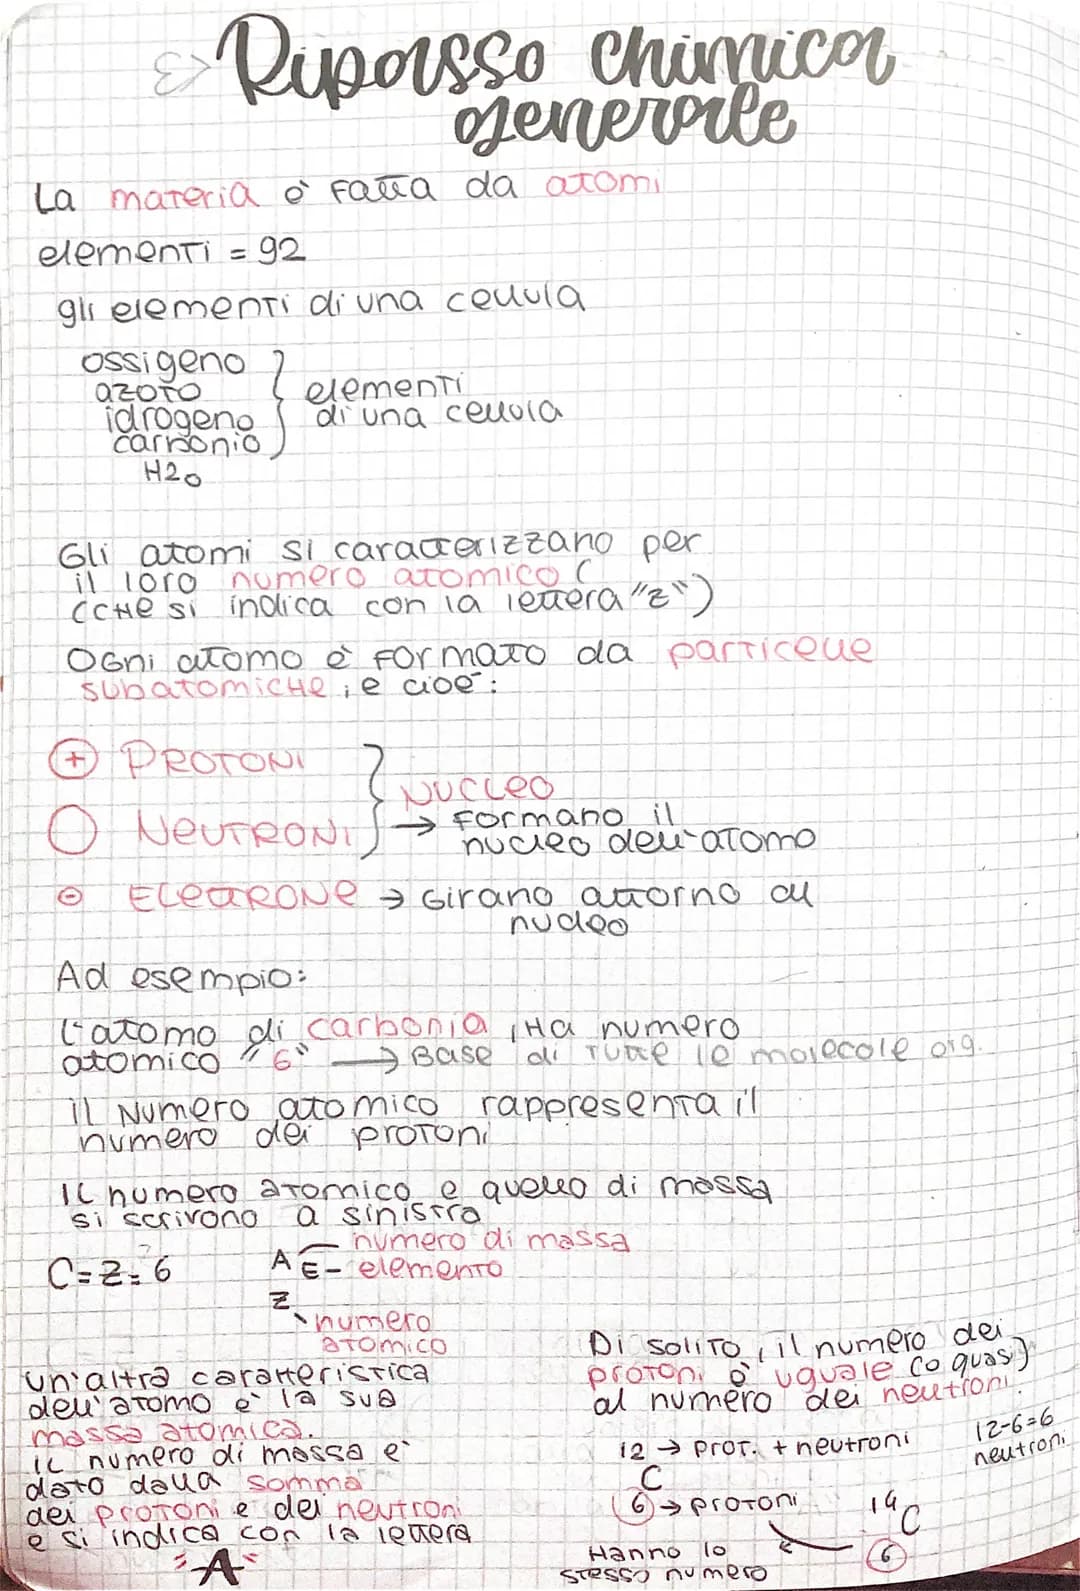 Ripasso chimica
generale
La materia è fatta da atomi
elementi = 92
gli elementi di una cellula
ossigeno
azoto
idrogeno
carbonio
elementi
di una cellula
H2O
Gli atomi si caratterizzano per
il loro numero atomico (
(che si indica con la lettera "z")
Ogni atomo è formato da particelle
subatomiche, e cioè:
+ PROTONI
NEUTRONI
NUCLEO
→ formano il
nucleo dell'atomo
- ELETTRONE → Girano attorno al
nucleo
Ad esempio:
l'atomo di carbonio, ha numero
atomico "6" → Base di tutte le molecole org.
il numero atomico rappresenta il
numero dei protoni
Il numero atomico e quello di massa
si scrivono a sinistra
C=Z=6
A numero di massa
E - elemento
Z
numero
atomico
un'altra caratteristica
dell'atomo è la sua
massa atomica.
il numero di massa è
dato dalla somma
dei protoni e dei neutroni
e si indica con la lettera
"A"
Di solito, il numero dei
protoni è uguale (o quasi)
al numero dei neutroni.
12 → prot. + neutroni
C
6 → protoni
12-6=6
neutroni
14
C
6
Hanno lo
stesso numero